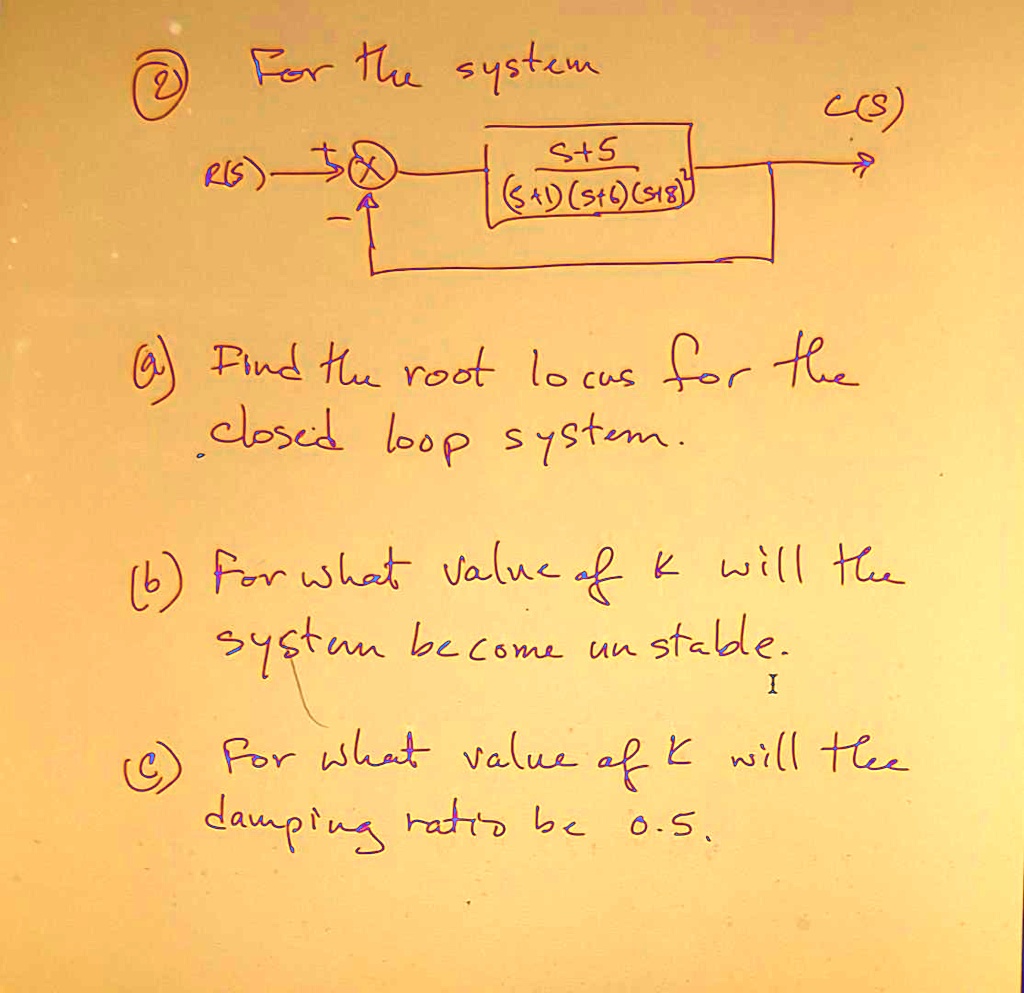 ② For the system
C(S)
R(S) + X S+5
- (S+1)(S+6)(S+8)²
(a) Find the root locus for the
closed loop system.
(b) For what value of K will the
system become unstable.
(c) For what value of K will the
damping ratio be 0.5.